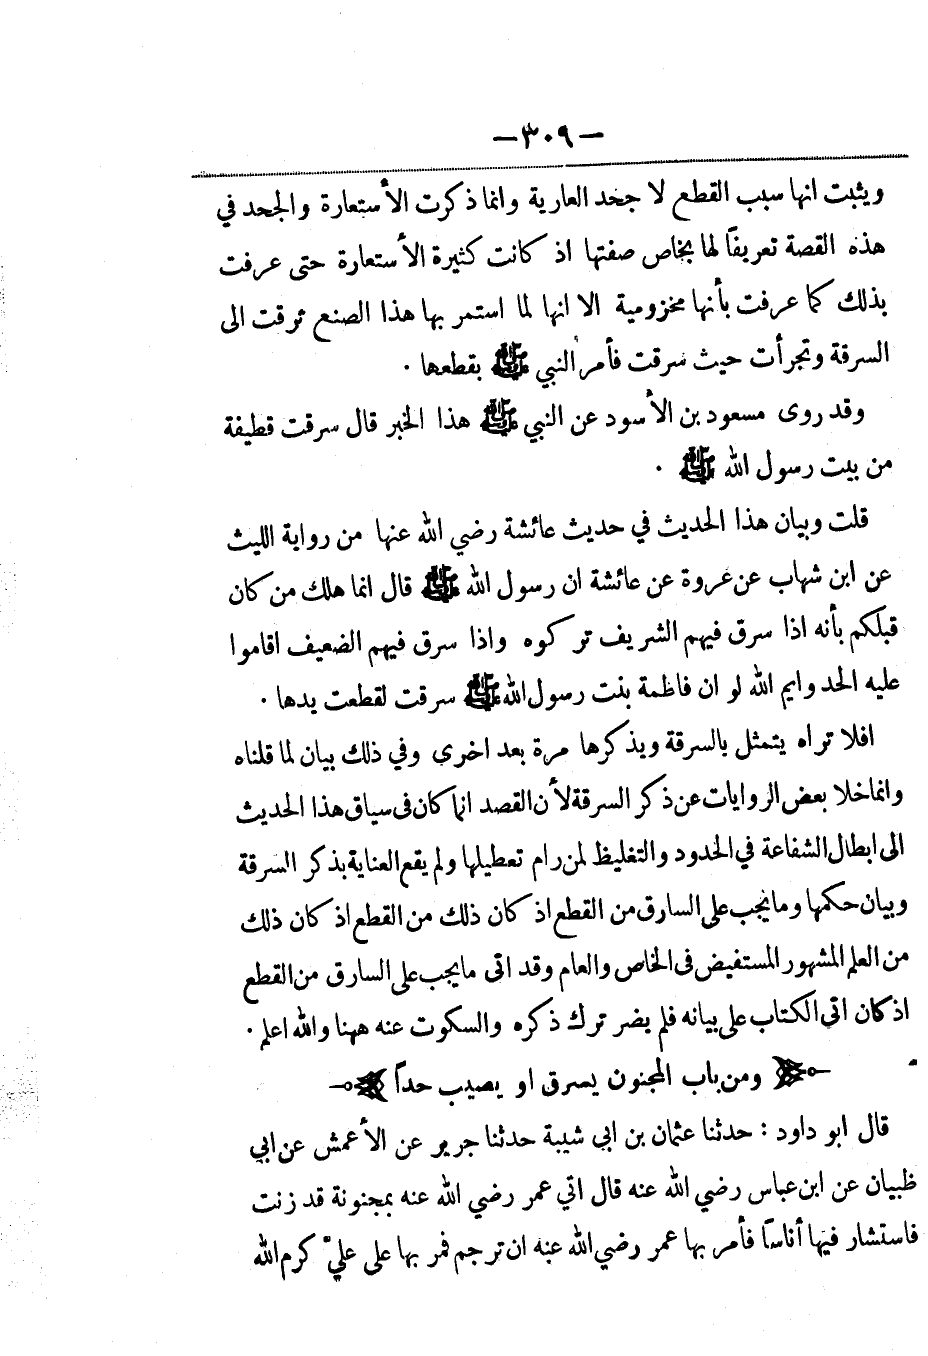 — ٣٠٩ —
ويثبت انها سبب القطع لا جحد العارية وانما ذكرت الأستعارة والجحد في
هذه القصة تعريفاً لها بخاص صفتها اذ كانت كثيرة الأستعارة حتى عرفت
بذلك كما عرفت بأنها مخزومية الا انها لما استمر بها هذا الصنع ترقت الى
السرقة وتجرأت حيث سرقت فأمر النبي ﷺ بقطعها ٠
وقد روى مسعود بن الأسود عن النبي ﷺ هذا الخبر قال سرقت قطيفة
من بيت رسول الله ﷺ ٠
قلت وبيان هذا الحديث في حديث عائشة رضي الله عنها من رواية الليث
عن ابن شهاب عن عروة عن عائشة ان رسول الله ﷺ قال انما هلك من كان
قبلكم بأنه اذا سرق فيهم الشريف تركوه واذا سرق فيهم الضعيف اقاموا
عليه الحد وايم الله لو ان فاطمة بنت رسول الله ﷺ سرقت لقطعت يدها ٠
افلا تراه يتمثل بالسرقة ويذكرها مرة بعد اخرى وفي ذلك بيان لما قلناه
وانما خلا بعض الروايات عن ذكر السرقة لأن القصد انما كان في سياق هذا الحديث
الى ابطال الشفاعة في الحدود والتغليظ لمن رام تعطيلها ولم يقع العناية بذكر السرقة
وبيان حكمها وما يجب على السارق من القطع اذ كان ذلك من القطع اذ كان ذلك
من العلم المشهور المستفيض في الخاص والعام وقد اتى ما يجب على السارق من القطع
اذ كان اتى الكتاب على بيانه فلم يضر ترك ذكره والسكوت عنه ههنا والله اعلم ٠
ومن باب المجنون يسرق او يصيب حداً
قال ابو داود : حدثنا عثمان بن ابي شيبة حدثنا جرير عن الأعمش عن ابي
ظبيان عن ابن عباس رضي الله عنه قال اتي عمر رضي الله عنه بمجنونة قد زنت
فاستشار فيها أناسًا فأمر بها عمر رضي الله عنه ان ترجم فمر بها على علي كرم الله